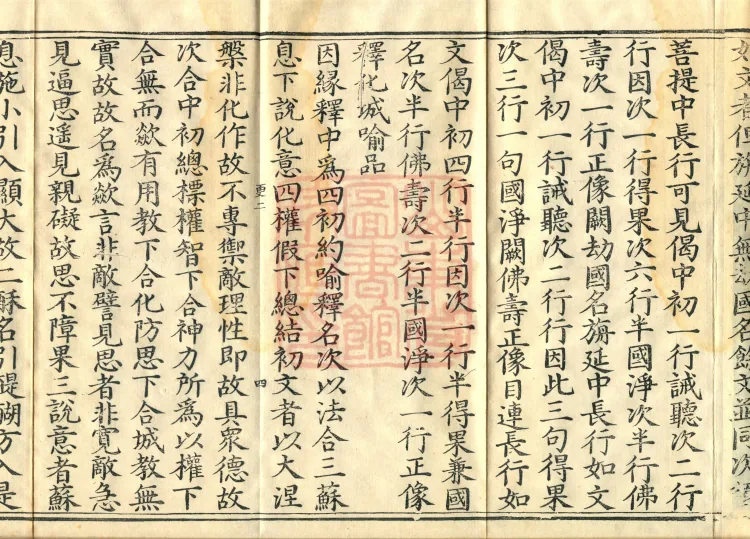 如文者但旃延中無劫國名餘文並同次
菩提中長行可見偈中初一行誡聽次二行
行因次一行得果次六行半國淨次半行佛
壽次一行正像闕劫國名旃延中長行如文
偈中初一行誡聽次二行行因此三句得果
次三行一句國淨闕佛壽正像目連長行如
文偈中初四行半行因次一行半得果兼國
名次半行佛壽次二行半國淨次一行正像
釋化城喻品
因緣釋中為四初約喻釋名次以法合三蘇
息下說化意四權假下總結初文者以大涅
槃非化作故不專禦敵理性即故具眾德故
更二
四
次合中初總標權智下合神力所為以權下
合無而歘有用教下合化防思下合城教無
實故故名為歘言非敵譬見思者非寬敵急
見逼思遙見親礙故思不障果三說意者蘇
息施小引入顯大故二酥名引醍醐方入是